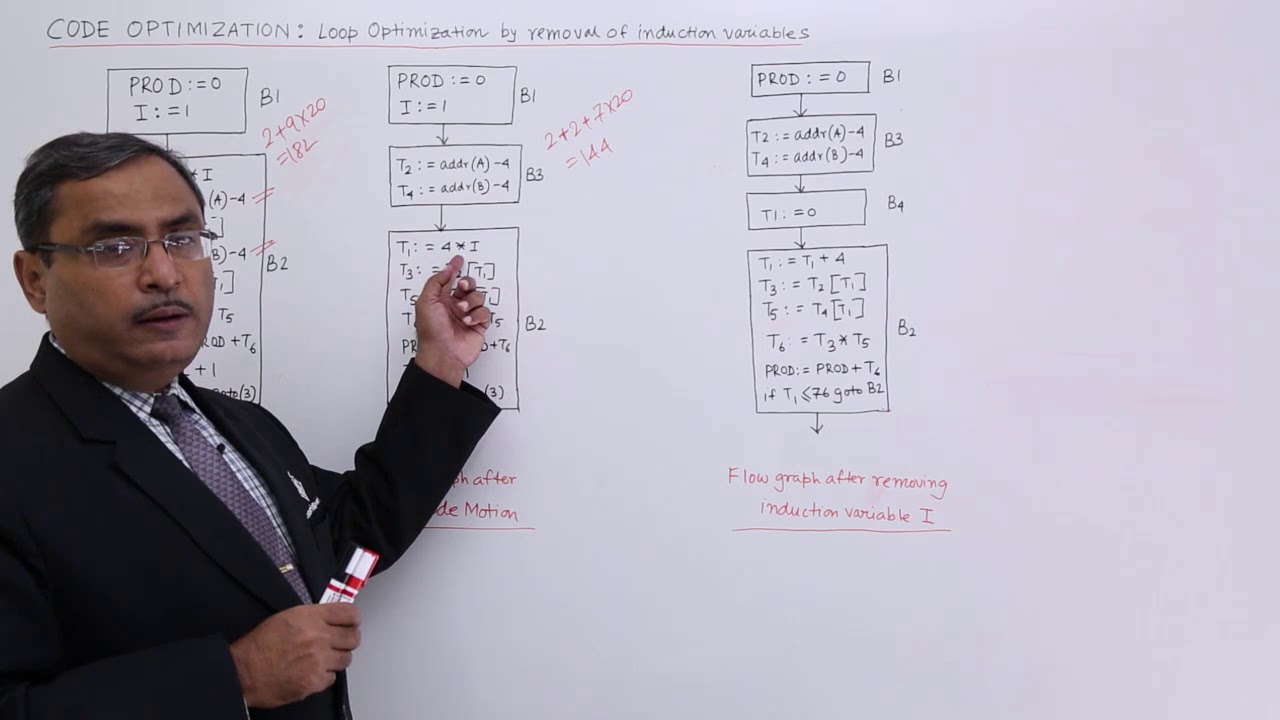 CODE OPTIMIZATION: Loop Optimization by removal of induction variables
PROD := 0
I := 1
B1
2+9×20
=182
* I
(A) - 4
]
B) - 4
]
T5
ROD + T6
+ 1
goto (3)
B2
PROD := 0
I := 1
B1
2+2+7×20
=144
T2 := addr(A) - 4
T4 := addr(B) - 4
B3
T1 := 4 * I
T3 := T2 [T1]
T5
+T6
(3)
B2
ph after
de Motion
PROD := 0
B1
T2 := addr(A) - 4
T4 := addr(B) - 4
B3
T1 := 0
B4
T1 := T1 + 4
T3 := T2 [T1]
T5 := T4 [T1]
T6 := T3 * T5
PROD := PROD + T6
if T1 ⩽ 76 goto B2
B2
Flow graph after removing
induction variable I